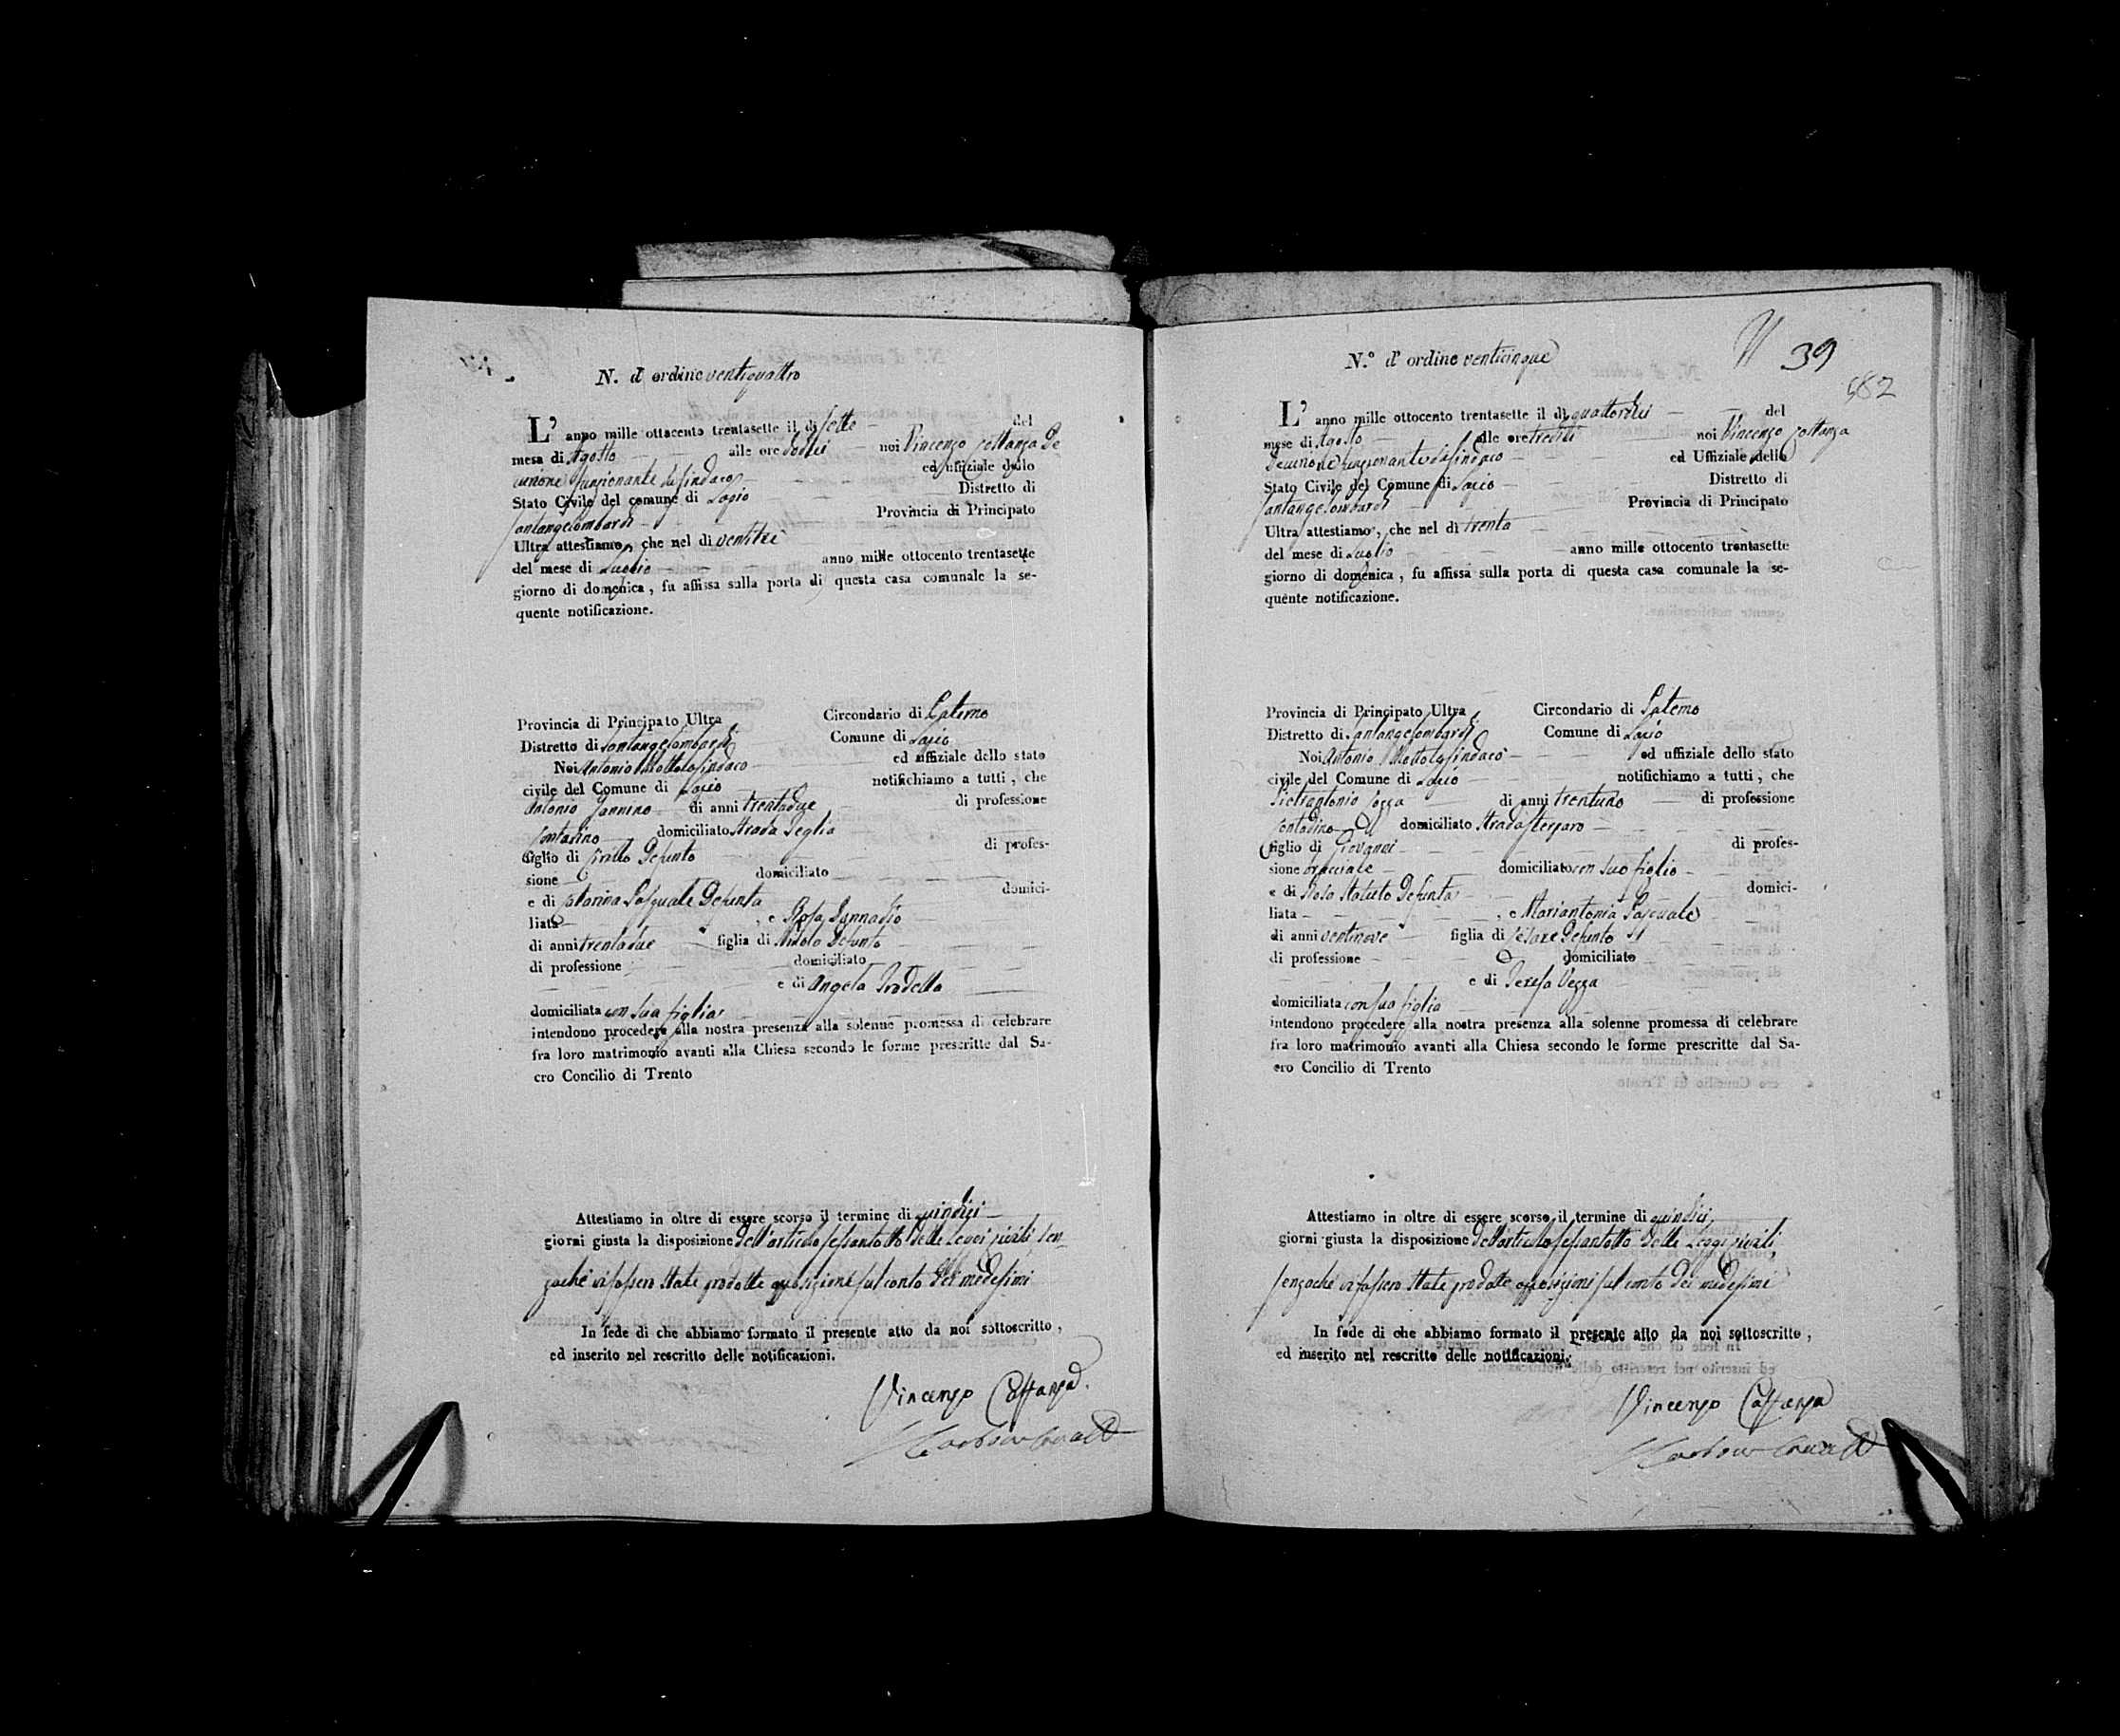 N. d' ordine ventiquattro
L' anno mille ottocento trentasette il dì sette del
mese di Agosto alle ore dodici noi Vincenzo Costanza De
curione funzionante da Sindaco ed uffiziale dello
Stato Civile del comune di Lapio Distretto di
Santangelombardi Provincia di Principato
Ultra attestiamo, che nel dì ventitrè
del mese di Luglio anno mille ottocento trentasette
giorno di domenica, fu affissa sulla porta di questa casa comunale la se-
quente notificazione.
Provincia di Principato Ultra Circondario di Paterno
Distretto di Santangelombardi Comune di Lapio
Noi Antonio Mottola Sindaco ed uffiziale dello stato
civile del Comune di Lapio notifichiamo a tutti, che
Antonio Iannino di anni trentadue di professione
Contadino domiciliato Strada Seglia
figlio di Cirillo Defunto di profes-
sione domiciliato
e di Catarina Pasquale Defunta domici-
liata , e Rosa
di anni trentadue figlia di Nicola Defunto
di professione domiciliato
e di Angela Irodella
domiciliata con sua figlia
intendono procedere alla nostra presenza alla solenne promessa di celebrare
fra loro matrimonio avanti alla Chiesa secondo le forme prescritte dal Sa-
cro Concilio di Trento
Attestiamo in oltre di essere scorso il termine di quindici
giorni giusta la disposizione dell'articolo sessantotto delle Leggi civili sen-
zachè vi fossero state prodotte opposizioni sul conto dei medesimi
In fede di che abbiamo formato il presente atto da noi sottoscritto,
ed inserito nel rescritto delle notificazioni.
Vincenzo Costanza
N.° d' ordine venticinque
39
482
L' anno mille ottocento trentasette il dì quattordici del
mese di Agosto alle ore tredici noi Vincenzo Costanza
Decurione funzionante da Sindaco ed Uffiziale dello
Stato Civile del Comune di Lapio Distretto di
Santangelombardi Provincia di Principato
Ultra attestiamo, che nel dì trenta
del mese di Luglio anno mille ottocento trentasette
giorno di domenica, fu affissa sulla porta di questa casa comunale la se-
quente notificazione.
Provincia di Principato Ultra Circondario di Paterno
Distretto di Santangelombardi Comune di Lapio
Noi Antonio Mottola Sindaco ed uffiziale dello stato
civile del Comune di Lapio notifichiamo a tutti, che
Pietrantonio di anni trentuno di professione
Contadino domiciliato Strada
figlio di Giovanni di profes-
sione bracciale domiciliato con suo figlio
e di Rosa Statuto Defunta domici-
liata , e Mariantonia Pascuale
di anni ventinove figlia di Cesare Defunto
di professione domiciliato
e di Teresa Vezza
domiciliata con sua figlia
intendono procedere alla nostra presenza alla solenne promessa di celebrare
fra loro matrimonio avanti alla Chiesa secondo le forme prescritte dal Sa-
cro Concilio di Trento
Attestiamo in oltre di essere scorso il termine di quindici
giorni giusta la disposizione dell'articolo sessantotto delle Leggi civili,
senzachè vi fossero state prodotte opposizioni sul conto dei medesimi
In fede di che abbiamo formato il presente atto da noi sottoscritto,
ed inserito nel rescritto delle notificazioni.
Vincenzo Costanza